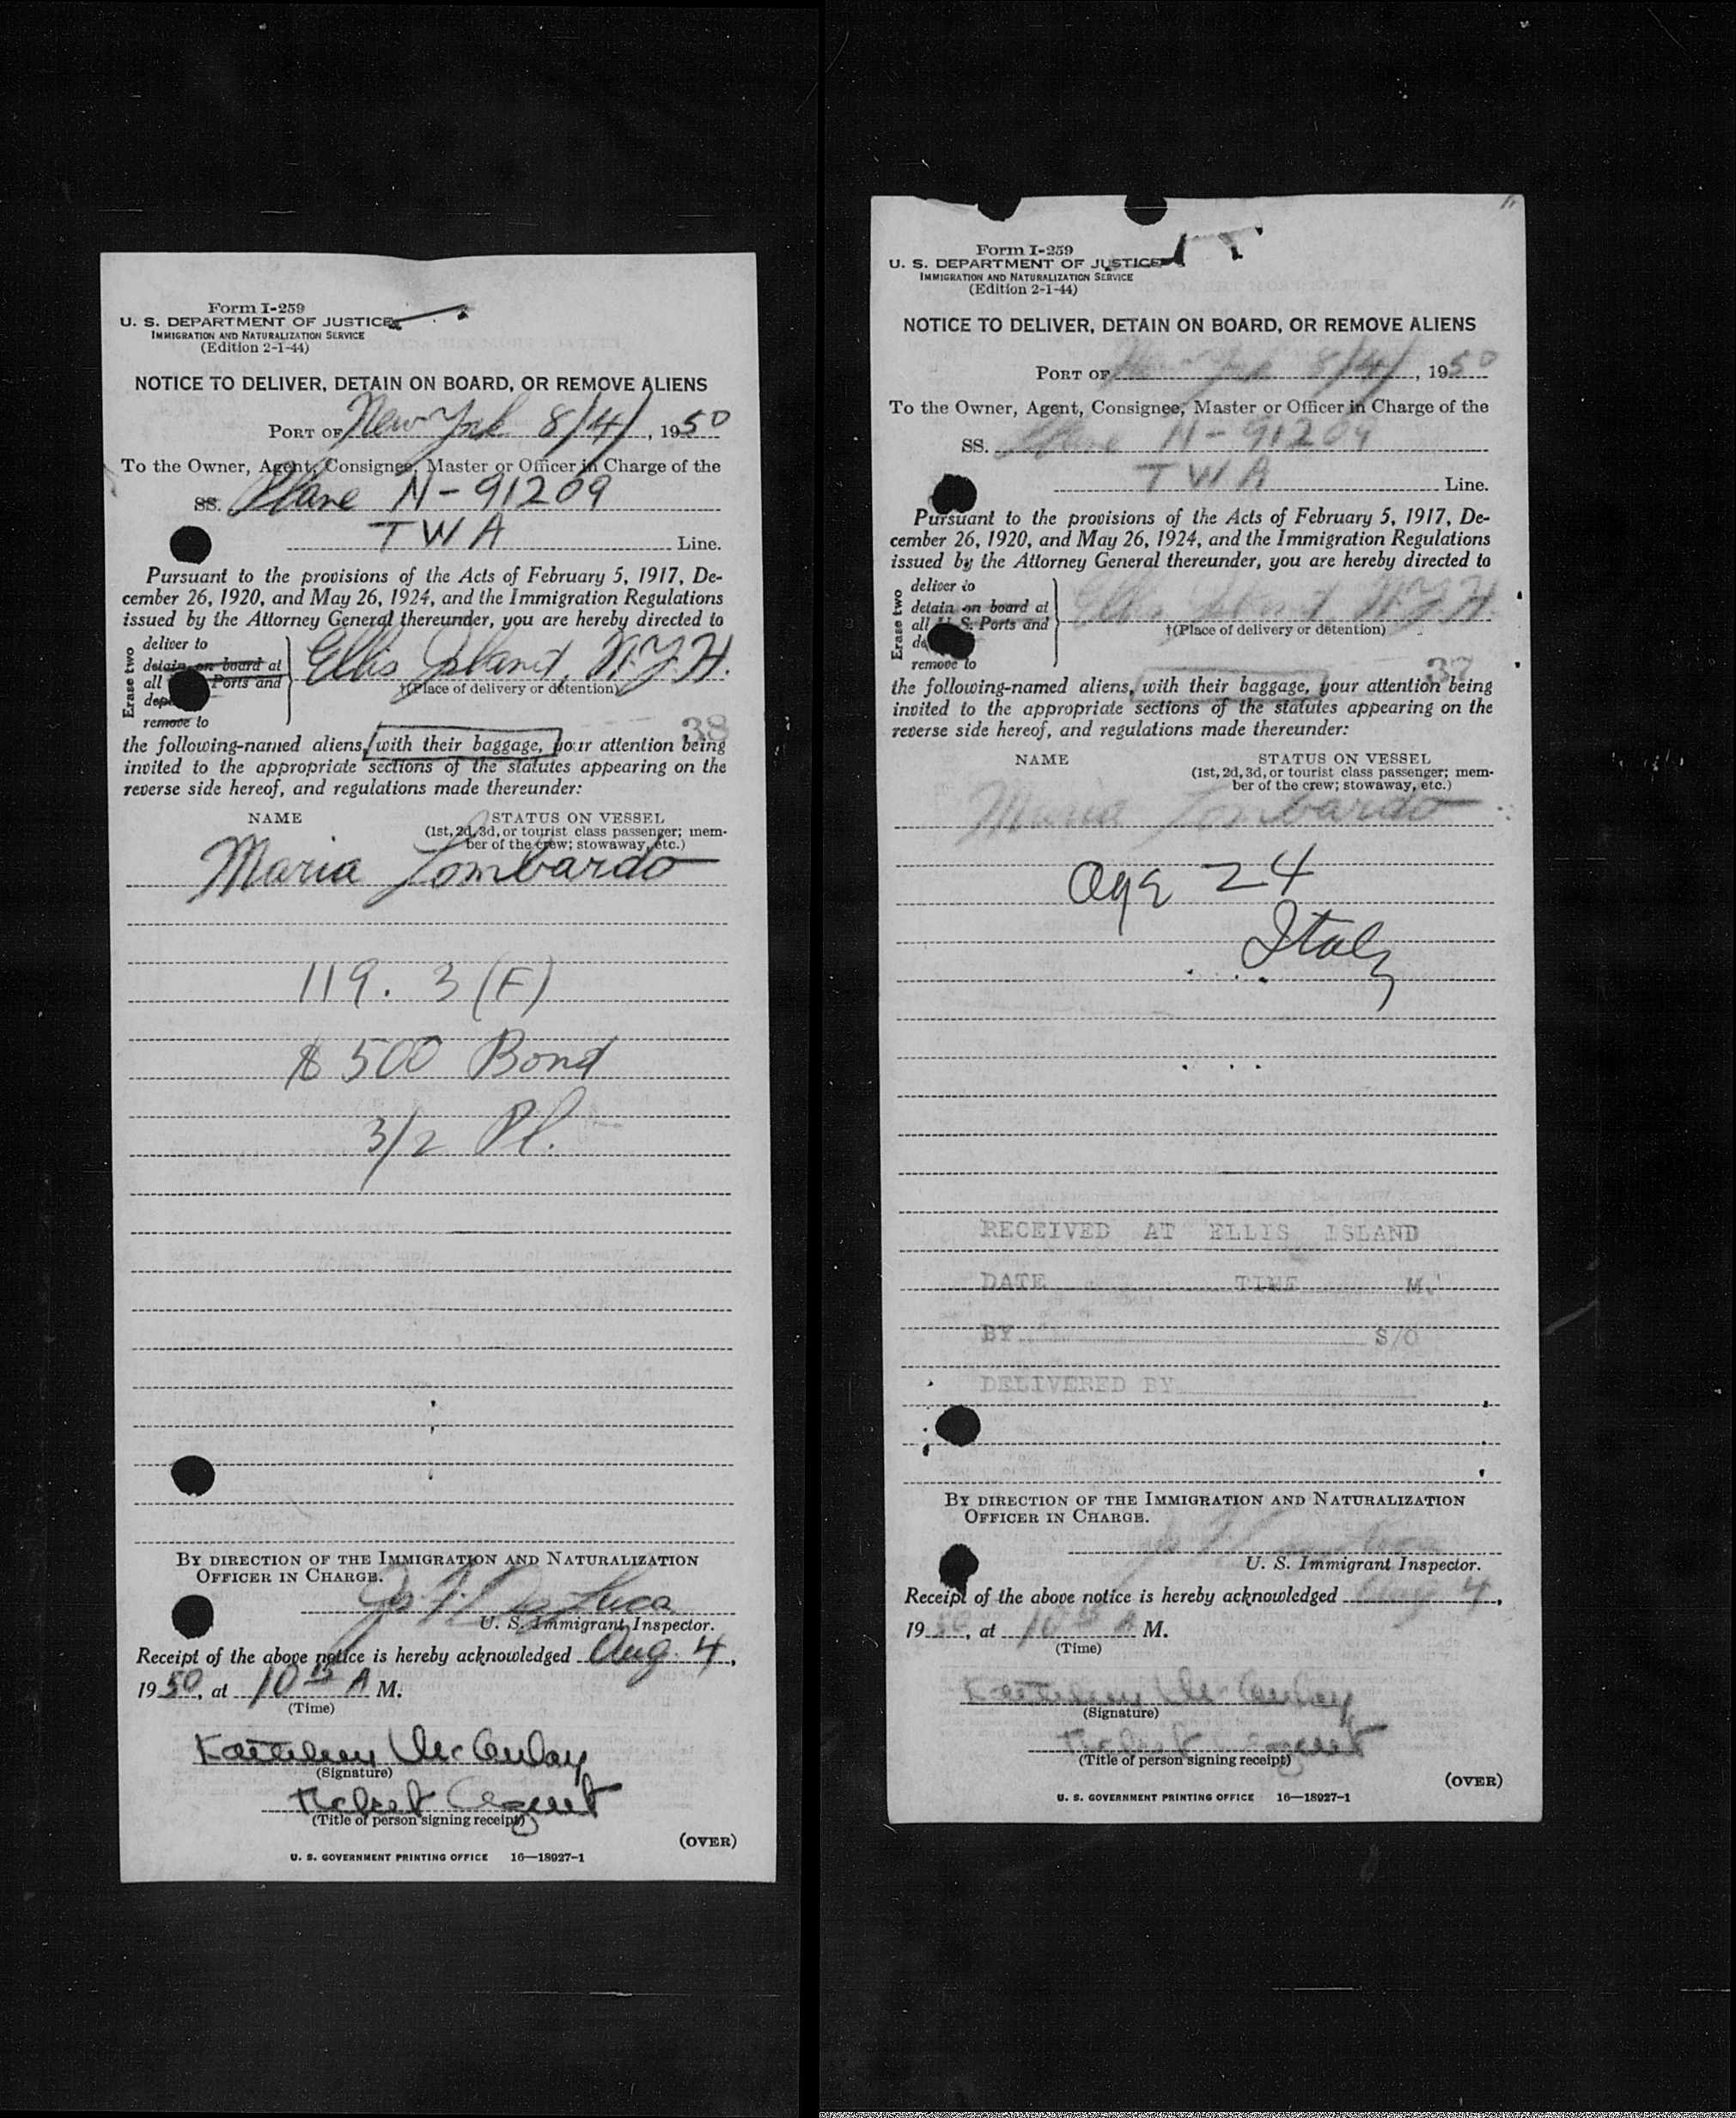 Form I-259
U. S. DEPARTMENT OF JUSTICE
IMMIGRATION AND NATURALIZATION SERVICE
(Edition 2-1-44)
NOTICE TO DELIVER, DETAIN ON BOARD, OR REMOVE ALIENS
PORT OF New York 8/4/, 1950
To the Owner, Agent, Consignee, Master or Officer in Charge of the
SS. Plane N-91209
TWA Line.
Pursuant to the provisions of the Acts of February 5, 1917, De-
cember 26, 1920, and May 26, 1924, and the Immigration Regulations
issued by the Attorney General thereunder, you are hereby directed to
Erase two
deliver to
detain on board at
all Ports and
remove to
Ellis Island, N.Y.H.
†(Place of delivery or detention)
38
the following-named aliens, with their baggage, your attention being
invited to the appropriate sections of the statutes appearing on the
reverse side hereof, and regulations made thereunder:
NAME STATUS ON VESSEL
(1st, 2d, 3d, or tourist class passenger; mem-
ber of the crew; stowaway, etc.)
Maria Lombardo
119. 3 (F)
$500 Bond
3/2 Pl.
BY DIRECTION OF THE IMMIGRATION AND NATURALIZATION
OFFICER IN CHARGE.
Luca
U. S. Immigrant Inspector.
Receipt of the above notice is hereby acknowledged Aug. 4,
1950, at 10 15 A M.
(Time)
Kathleen McCauley
(Signature)
Ticket Agent
(Title of person signing receipt)
(OVER)
U. S. GOVERNMENT PRINTING OFFICE 16—18927-1
Form I-259
U. S. DEPARTMENT OF JUSTICE
IMMIGRATION AND NATURALIZATION SERVICE
(Edition 2-1-44)
NOTICE TO DELIVER, DETAIN ON BOARD, OR REMOVE ALIENS
PORT OF New York 8/4/, 1950
To the Owner, Agent, Consignee, Master or Officer in Charge of the
SS. Plane N-91209
TWA Line.
Pursuant to the provisions of the Acts of February 5, 1917, De-
cember 26, 1920, and May 26, 1924, and the Immigration Regulations
issued by the Attorney General thereunder, you are hereby directed to
Erase two
deliver to
detain on board at
all U. S. Ports and
remove to
Ellis Island, N.Y.H.
†(Place of delivery or detention)
37
the following-named aliens, with their baggage, your attention being
invited to the appropriate sections of the statutes appearing on the
reverse side hereof, and regulations made thereunder:
NAME STATUS ON VESSEL
(1st, 2d, 3d, or tourist class passenger; mem-
ber of the crew; stowaway, etc.)
Maria Lombardo
age 24
Italy
RECEIVED AT ELLIS ISLAND
DATE TIME M.
BY S/O
DELIVERED BY
BY DIRECTION OF THE IMMIGRATION AND NATURALIZATION
OFFICER IN CHARGE.
U. S. Immigrant Inspector.
Receipt of the above notice is hereby acknowledged Aug 4,
1950, at 10 15 A M.
(Time)
Kathleen McCauley
(Signature)
Ticket Agent
(Title of person signing receipt)
(OVER)
U. S. GOVERNMENT PRINTING OFFICE 16—18927-1